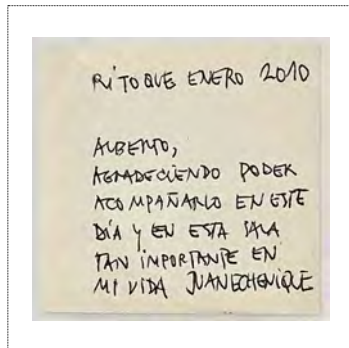 RITOQUE ENERO 2010
ALBERTO,
AGRADECIENDO PODER
ACOMPAÑARLO EN ESTE
DÍA Y EN ESTA SALA
TAN IMPORTANTE EN
MI VIDA JUAN ECHENIQUE